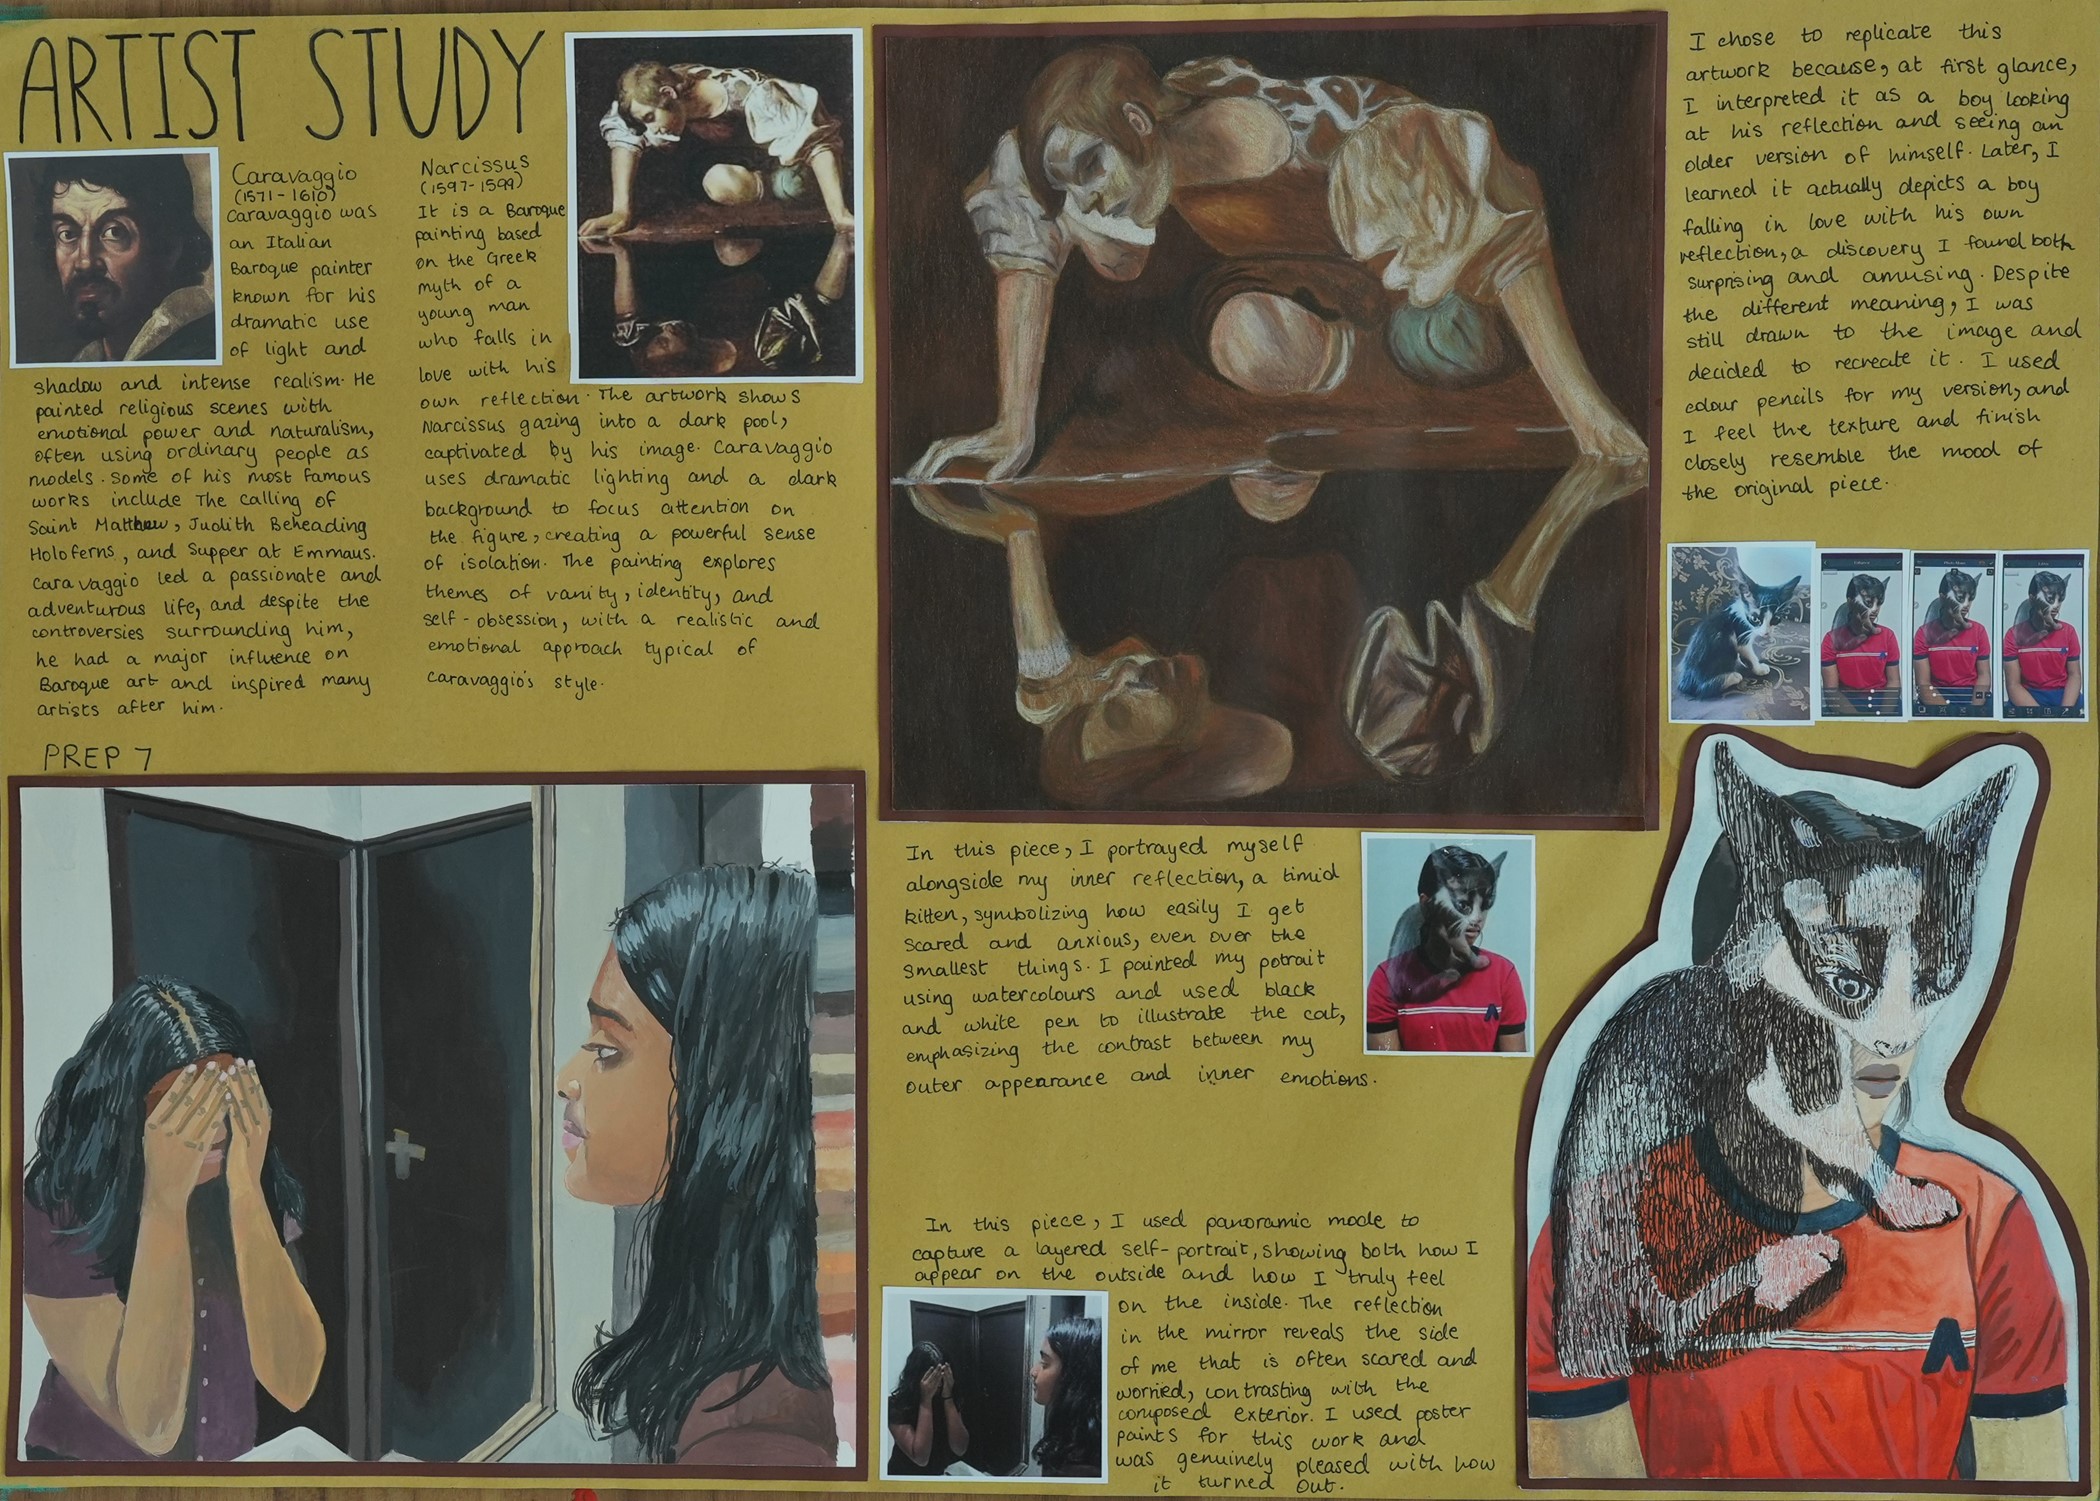 ARTIST STUDY
Caravaggio
(1571-1610)
Caravaggio was
an Italian
Baroque painter
known for his
dramatic use
of light and
shadow and intense realism. He
painted religious scenes with
emotional power and naturalism,
often using ordinary people as
models. Some of his most famous
works include The calling of
Saint Matthew, Judith Beheading
Holoferns, and Supper at Emmaus.
Caravaggio led a passionate and
adventurous life, and despite the
controversies surrounding him,
he had a major influence on
Baroque art and inspired many
artists after him.
Narcissus
(1597-1599)
It is a Baroque
painting based
on the Greek
myth of a
young man
who falls in
love with his
own reflection. The artwork shows
Narcissus gazing into a dark pool,
captivated by his image. Caravaggio
uses dramatic lighting and a dark
background to focus attention on
the figure, creating a powerful sense
of isolation. The painting explores
themes of vanity, identity, and
self-obsession, with a realistic and
emotional approach typical of
Caravaggio's style.
I chose to replicate this
artwork because, at first glance,
I interpreted it as a boy looking
at his reflection and seeing an
older version of himself. Later, I
learned it actually depicts a boy
falling in love with his own
reflection, a discovery I found both
surprising and amusing. Despite
the different meaning, I was
still drawn to the image and
decided to recreate it. I used
colour pencils for my version, and
I feel the texture and finish
closely resemble the mood of
the original piece.
PREP 7
In this piece, I portrayed myself
alongside my inner reflection, a timid
kitten, symbolizing how easily I get
scared and anxious, even over the
smallest things. I painted my potrait
using watercolours and used black
and white pen to illustrate the cat,
emphasizing the contrast between my
outer appearance and inner emotions.
In this piece, I used panoramic mode to
capture a layered self-portrait, showing both how I
appear on the outside and how I truly feel
on the inside. The reflection
in the mirror reveals the side
of me that is often scared and
worried, contrasting with the
composed exterior. I used poster
paints for this work and
was genuinely pleased with how
it turned out.